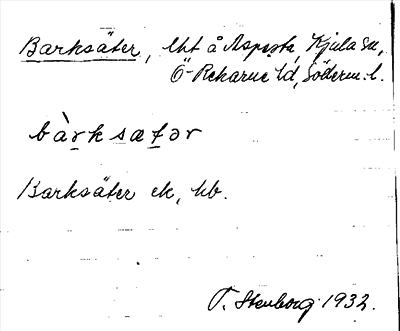 Barksäter, lht å Aspesta, Kjula sn,
Ö-Rekarne hd, Söderm. l.
bàrksætər
Barksäter ek, hb.
T. Stenborg 1932.